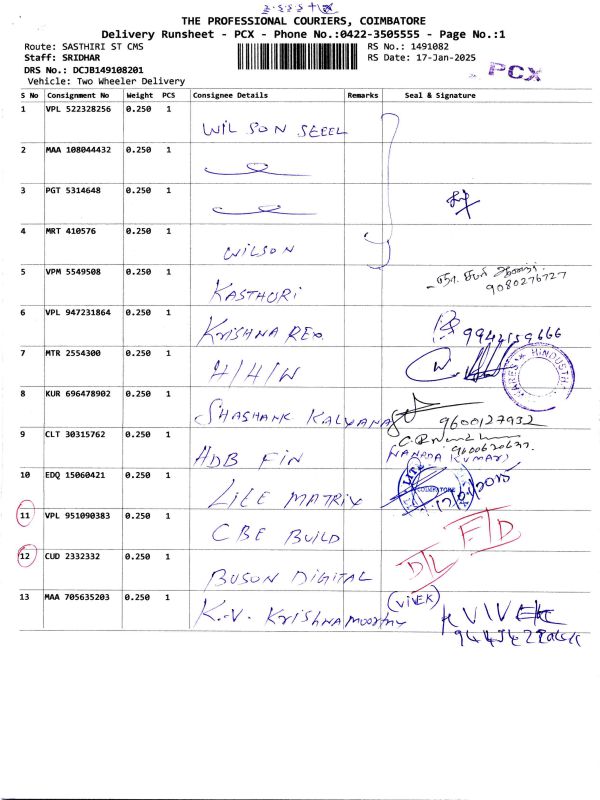 THE PROFESSIONAL COURIERS, COIMBATORE
Delivery Runsheet - PCX - Phone No.:0422-3505555 - Page No.:1
Route: SASTHIRI ST CMS
RS No.: 1491082
Staff: SRIDHAR
RS Date: 17-Jan-2025
DRS No.: DCJB149108201
PCX
Vehicle: Two Wheeler Delivery
S No Consignment No Weight PCS Consignee Details Remarks Seal & Signature
1 VPL 522328256 0.250 1 WILSON STEEL
2 MAA 108044432 0.250 1
3 PGT 5314648 0.250 1
4 MRT 410576 0.250 1 WILSON
5 VPM 5549508 0.250 1 KASTHURI 9080276727
6 VPL 947231864 0.250 1 KRISHNA REO 9944159666
7 MTR 2554300 0.250 1 H/H/W HINDUSTH
8 KUR 696478902 0.250 1 SHASHANK KALYANA 9600127932
9 CLT 30315762 0.250 1 HDB FIN (NANADA KUMAR)
10 EDQ 15060421 0.250 1 LITE MATRIX COIMBATORE 17/01/2025
11 VPL 951090383 0.250 1 CBE BUILD
12 CUD 2332332 0.250 1 BUSON DIGITAL D/L F/D
13 MAA 705635203 0.250 1 K.V. Krishnamoorthy (VIVEK) VIVEK